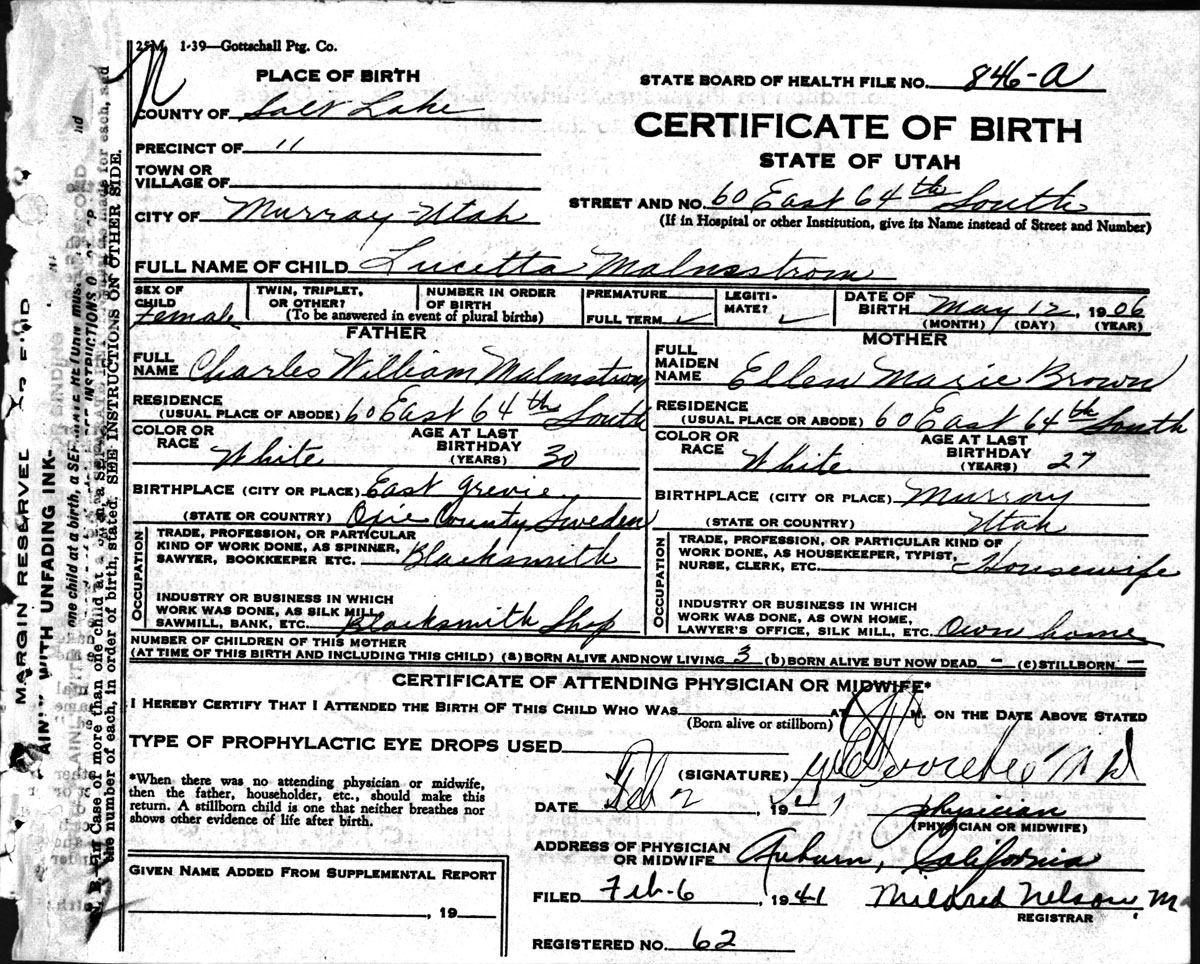 25M 1-39—Gottschall Ptg. Co.
PLACE OF BIRTH
COUNTY OF Salt Lake
PRECINCT OF "
TOWN OR
VILLAGE OF
CITY OF Murray-Utah
STATE BOARD OF HEALTH FILE NO. 846-A
CERTIFICATE OF BIRTH
STATE OF UTAH
STREET AND NO. 60 East 64th South
(If in Hospital or other Institution, give its Name instead of Street and Number)
FULL NAME OF CHILD Lucetta Malmstrom
SEX OF
CHILD
Female
TWIN, TRIPLET,
OR OTHER?
NUMBER IN ORDER
OF BIRTH
(To be answered in event of plural births)
PREMATURE
FULL TERM ✓
LEGITI-
MATE? ✓
DATE OF
BIRTH May 12, 1906
(MONTH) (DAY) (YEAR)
FATHER
FULL
NAME Charles William Malmstrom
RESIDENCE
(USUAL PLACE OF ABODE) 60 East 64th South
COLOR OR
RACE White
AGE AT LAST
BIRTHDAY
(YEARS) 30
BIRTHPLACE (CITY OR PLACE) East Grevie,
(STATE OR COUNTRY) Oxie County, Sweden
OCCUPATION
TRADE, PROFESSION, OR PARTICULAR
KIND OF WORK DONE, AS SPINNER,
SAWYER, BOOKKEEPER ETC. Blacksmith
INDUSTRY OR BUSINESS IN WHICH
WORK WAS DONE, AS SILK MILL,
SAWMILL, BANK, ETC. Blacksmith Shop
MOTHER
FULL
MAIDEN
NAME Ellen Marie Brown
RESIDENCE
(USUAL PLACE OR ABODE) 60 East 64th South
COLOR OR
RACE White
AGE AT LAST
BIRTHDAY
(YEARS) 27
BIRTHPLACE (CITY OR PLACE) Murray
(STATE OR COUNTRY) Utah
OCCUPATION
TRADE, PROFESSION, OR PARTICULAR KIND OF
WORK DONE, AS HOUSEKEEPER, TYPIST,
NURSE, CLERK, ETC. Housewife
INDUSTRY OR BUSINESS IN WHICH
WORK WAS DONE, AS OWN HOME,
LAWYER'S OFFICE, SILK MILL, ETC. Own home
NUMBER OF CHILDREN OF THIS MOTHER
(AT TIME OF THIS BIRTH AND INCLUDING THIS CHILD) (a) BORN ALIVE AND NOW LIVING 3 (b) BORN ALIVE BUT NOW DEAD – (c) STILLBORN –
CERTIFICATE OF ATTENDING PHYSICIAN OR MIDWIFE*
I HEREBY CERTIFY THAT I ATTENDED THE BIRTH OF THIS CHILD WHO WAS AT M. ON THE DATE ABOVE STATED
(Born alive or stillborn)
TYPE OF PROPHYLACTIC EYE DROPS USED
*When there was no attending physician or midwife,
then the father, householder, etc., should make this
return. A stillborn child is one that neither breathes nor
shows other evidence of life after birth.
(SIGNATURE)
DATE Feb 2, 1941
physician
(PHYSICIAN OR MIDWIFE)
ADDRESS OF PHYSICIAN
OR MIDWIFE Auburn, California
GIVEN NAME ADDED FROM SUPPLEMENTAL REPORT
, 19
FILED Feb-6, 1941 Mildred Nelson, M
REGISTRAR
REGISTERED NO. 62
MARGIN RESERVED
WITH UNFADING INK-
N. B.—In Case of more than one child at a birth, a
the number of each, in order of birth, stated. SEE INSTRUCTIONS ON OTHER SIDE.